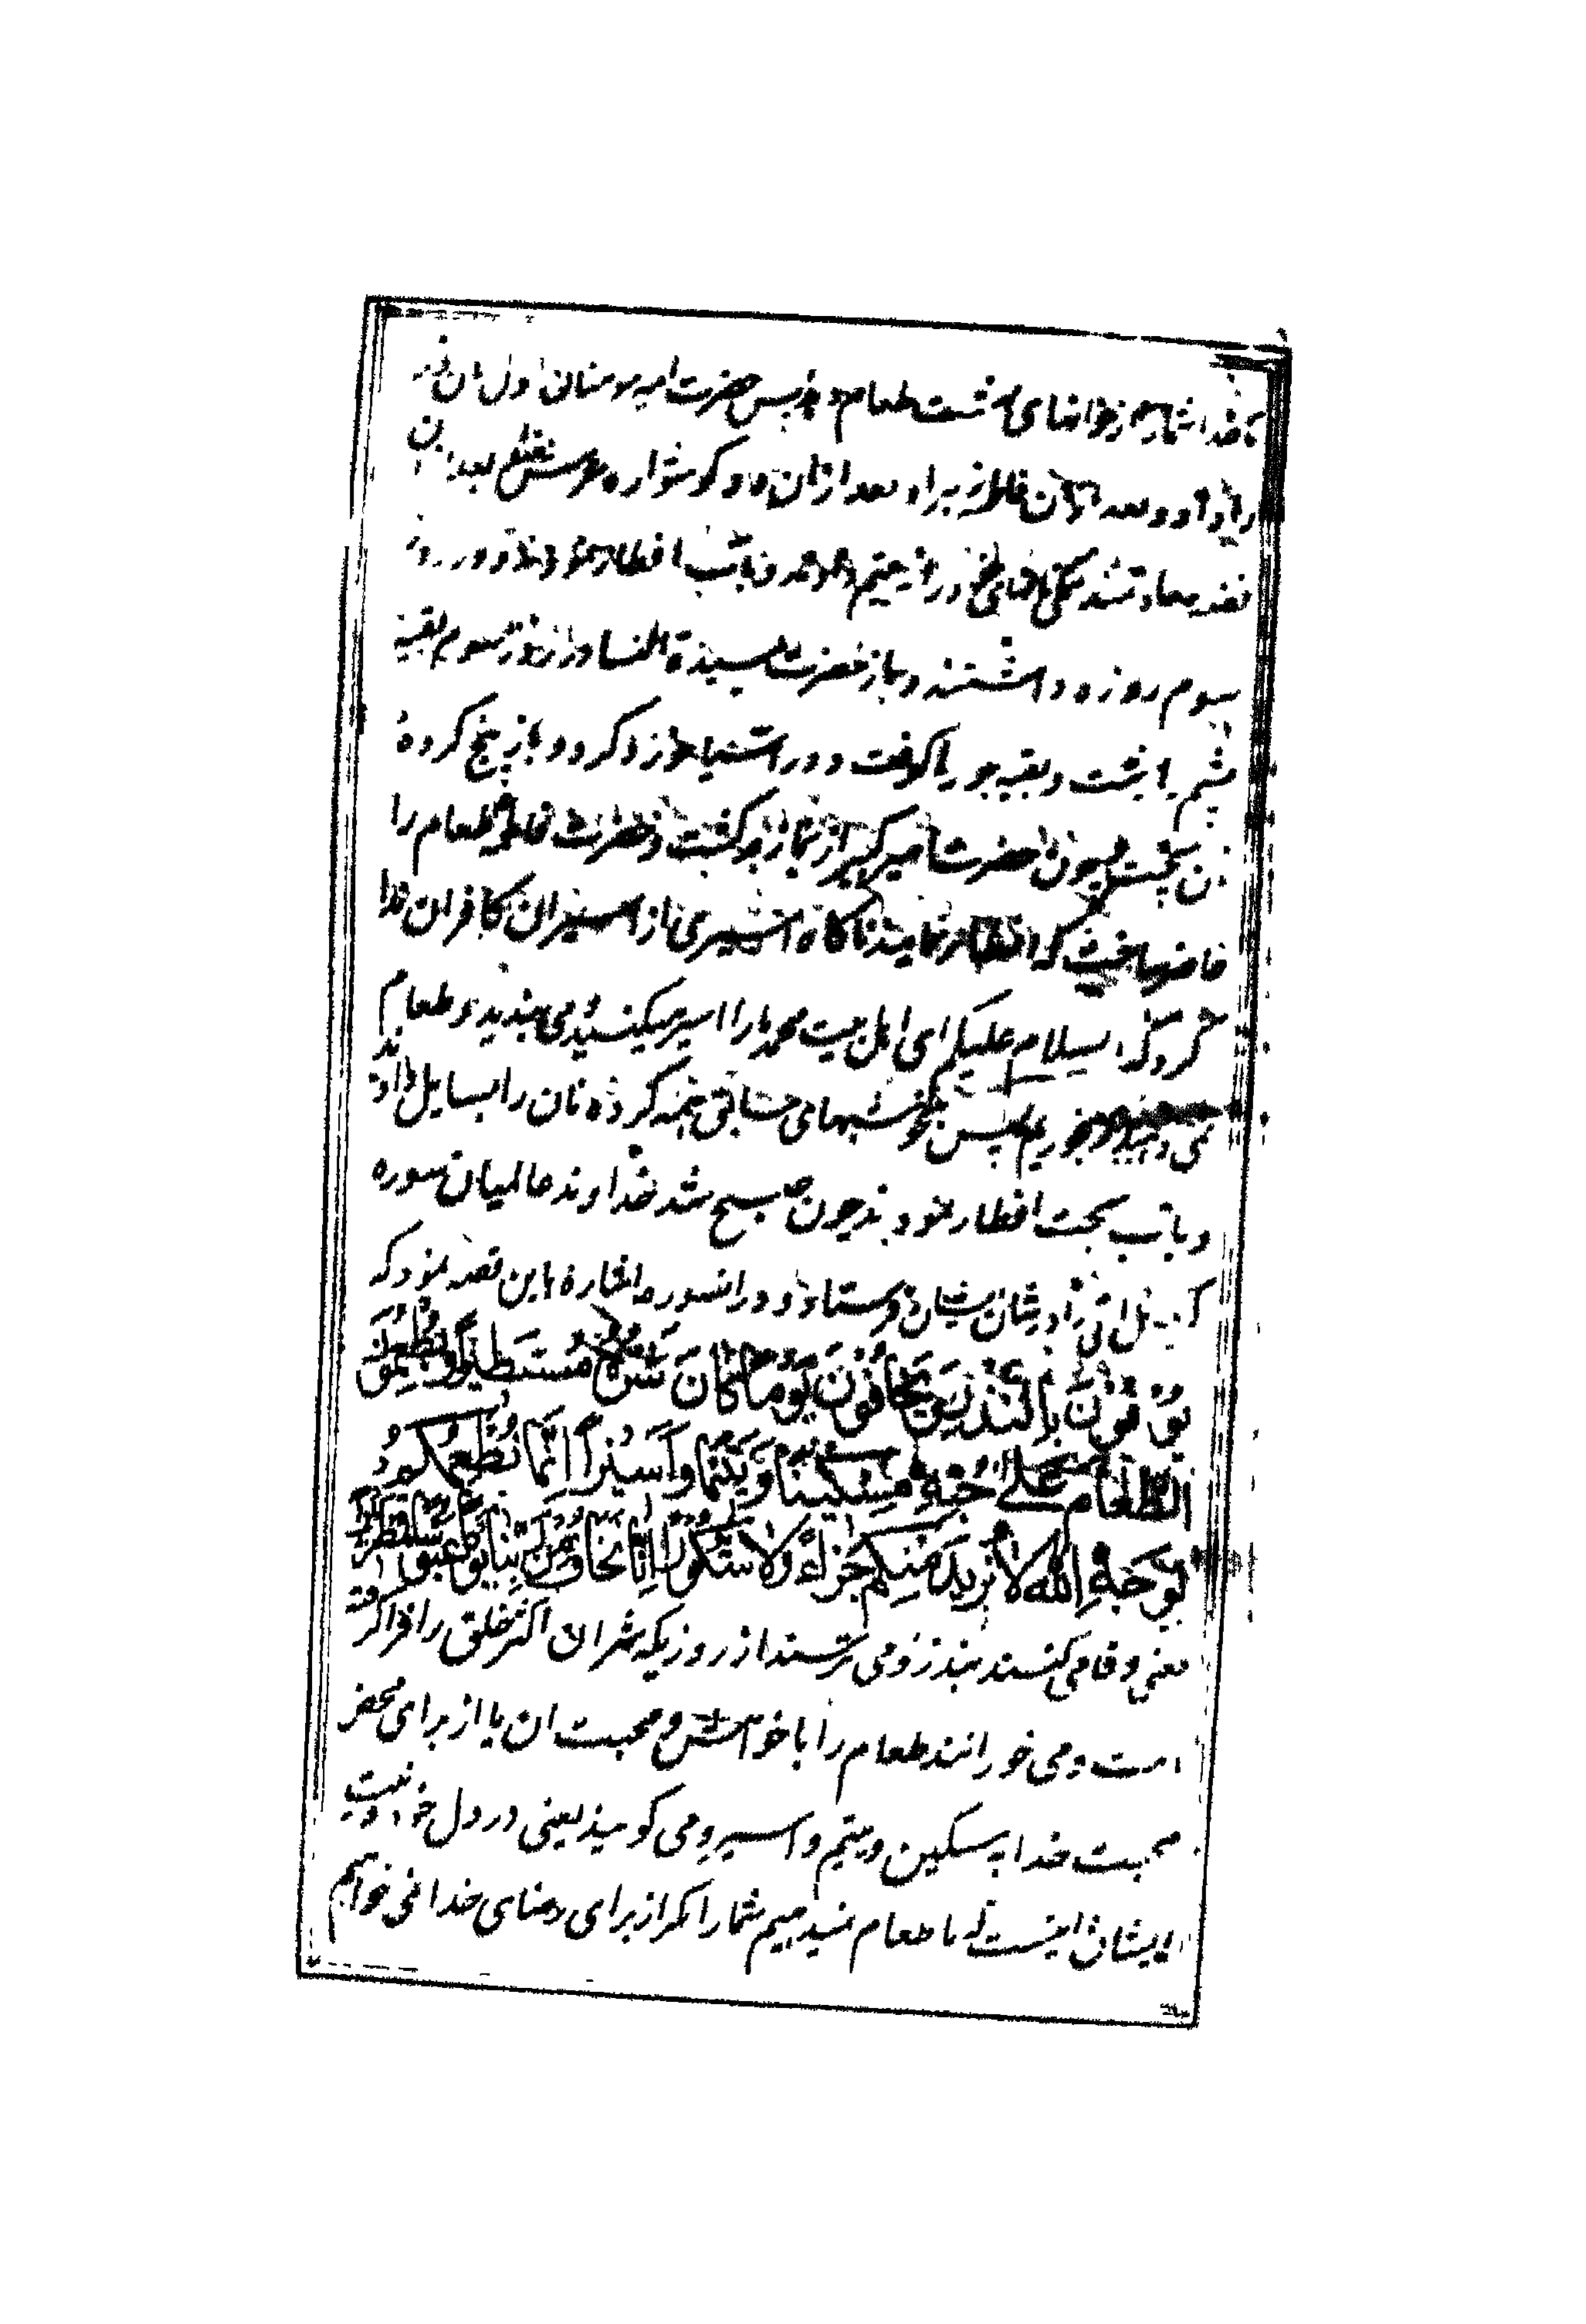 تا خدا شما را از خوانهای بهشت طعام دهد پس حضرت امیر مومنان اول نان خود
را داد و بعد از آن فاطمه زهرا و بعد از آن دو گوشواره عرش بعد از آن
فضه سعادتمند همگی نانهای خود را به یتیم دادند و بآب افطار نمودند و در روز
سوم روزه داشتند و باز حضرت سیدة النسا در آن روز سوم بقیه
پشم را رشت و بقیه جو را کوفت و در آسیا خورد کرد و باز پنج گرده
نان پخت چون حضرت امیر کبیر از نماز برگشت و حضرت فاطمه طعام را
حاضر ساخت که افطار نمایند ناگاه اسیری از اسیران کافران ندا
کرد که السلام علیکم ای اهل بیت محمد ما را اسیر میکنید و می بندید و طعام
نمی دهید که بخوریم پس بخوشبهای سابق همه گرده نان را بسایل دادند
و بآب بحت افطار نمودند چون صبح شد خداوند عالمیان سوره
کریمه هل اتی را در شان ایشان فرستاد و در انسوره اشاره باین قصه نمود که
یُوفُونَ بِالنَّذرِ وَیَخافُونَ یَوْماً کانَ شَرُّهُ مُسْتَطِیراً وَیُطْعِمُونَ
الطَّعامَ عَلی حُبِّهِ مِسْکِیناً وَیَتِیماً وَاَسِیْراً اِنَّما نُطْعِمُکُمْ
لِوَجْهِ اللّهِ لا نُرِیدُ مِنْکُم جَزاءً وَلا شُکُوراً اِنّا نَخافُ مِنْ رَبِّنا یَوْماً عَبُوساً قَمْطَرِیراً
یعنی وفا می کنند بنذر و می ترسند از روزیکه شر ان اکثر خلق را فرا گرفته
است و می خورانند طعام را با خواهش و محبت ان یا از برای محض
محبت خدا به مسکین و یتیم و اسیر و می گویند یعنی در دل خود نیت
ایشان اینست که ما طعام نمیدهیم شما را مگر از برای رضای خدا نمی خواهیم